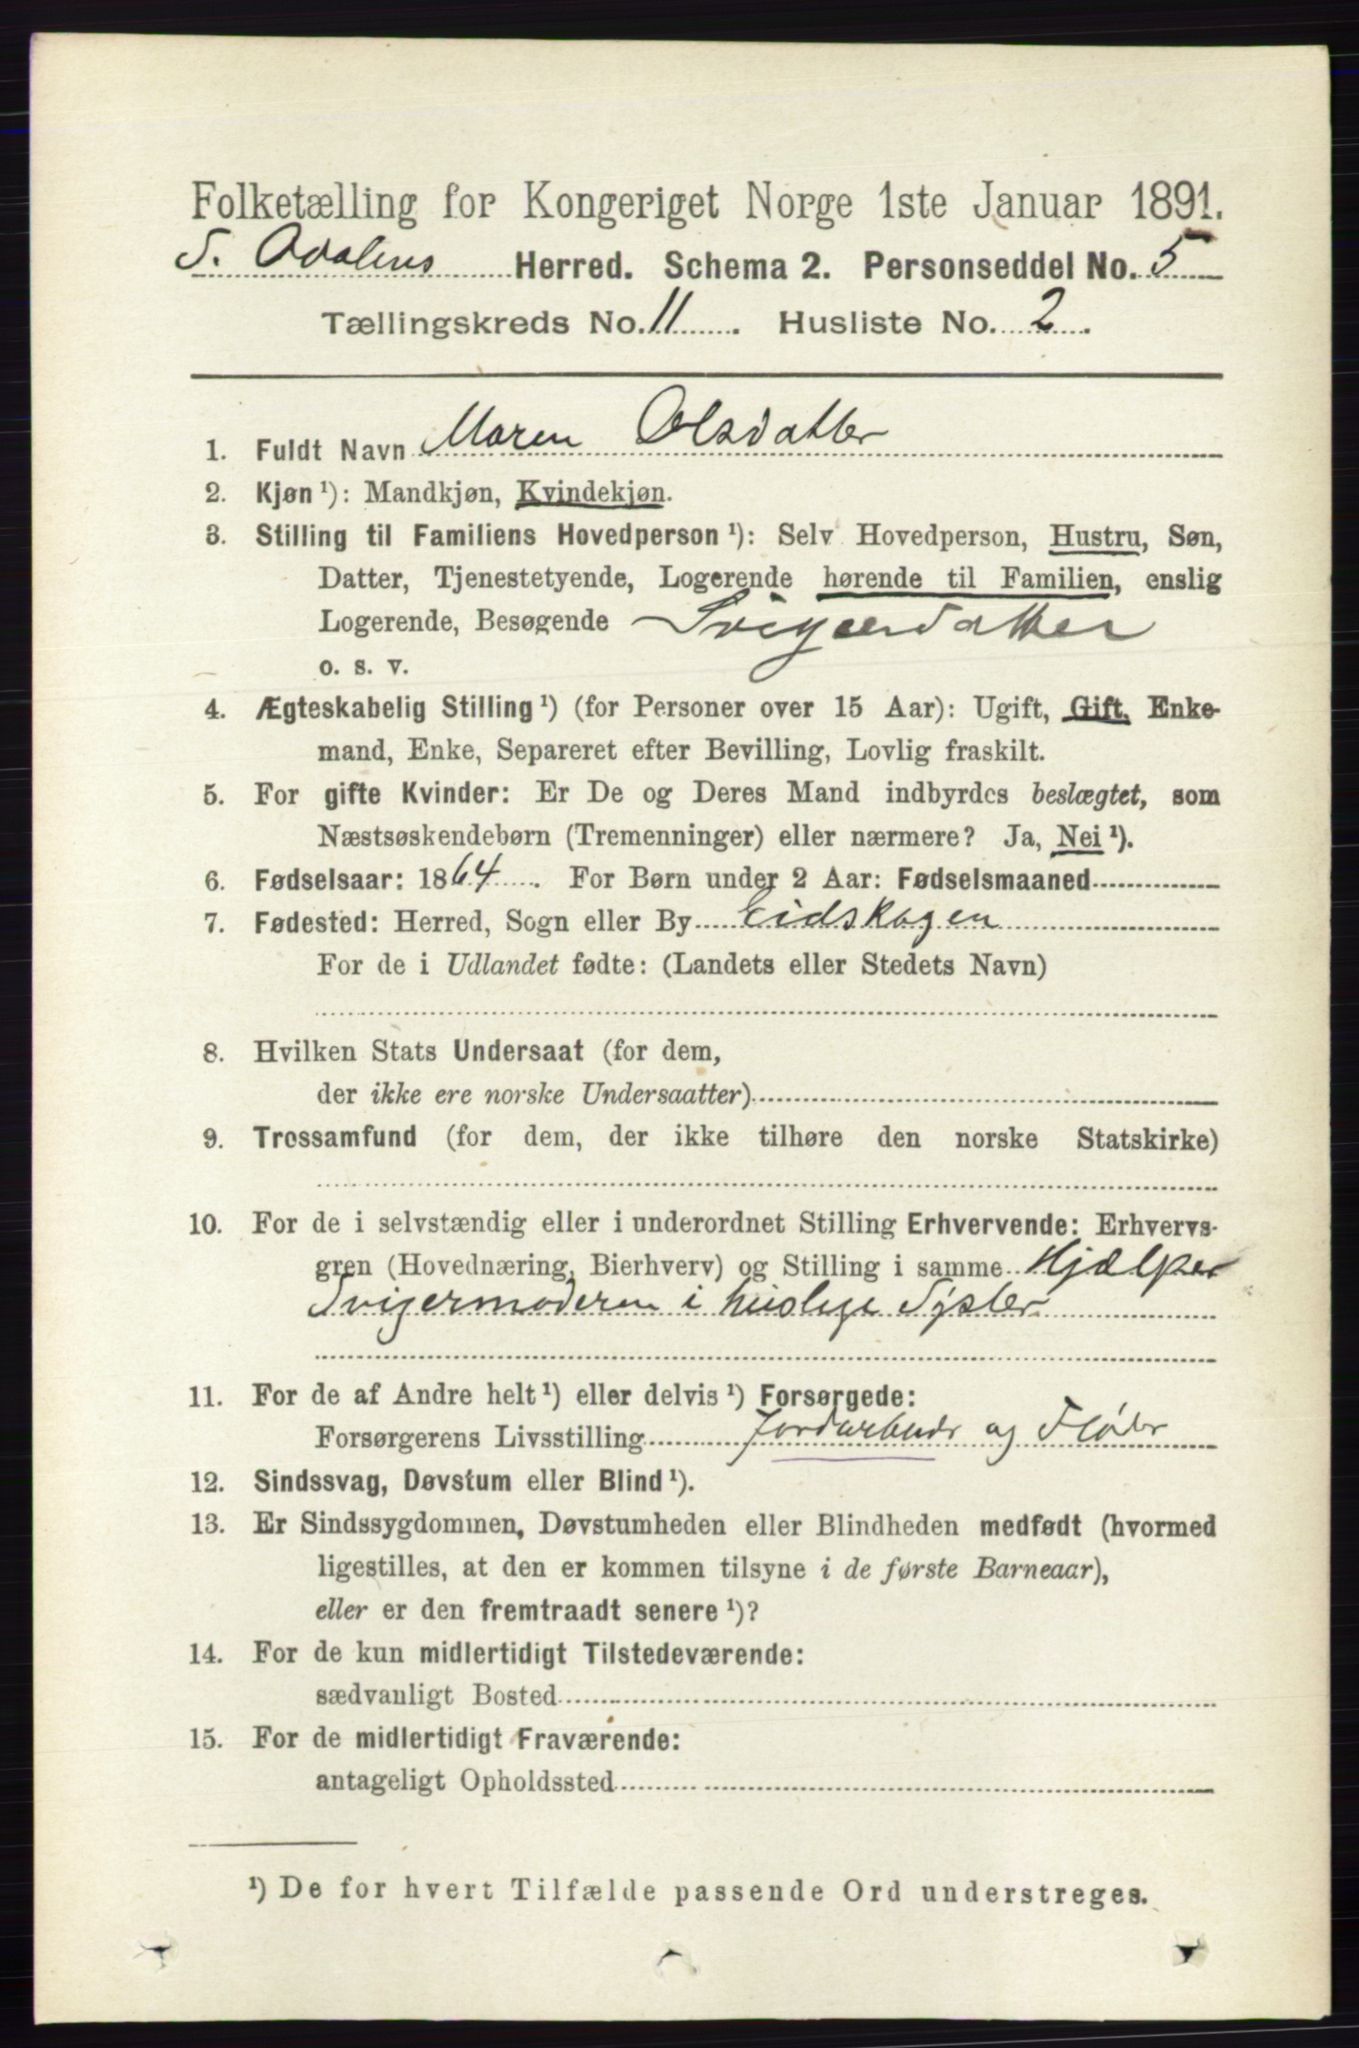 Folketælling for Kongeriget Norge 1ste Januar 1891.
S. Odalens Herred. Schema 2. Personseddel No. 5
Tællingskreds No. 11. Husliste No. 2.
1. Fuldt Navn Maren Olsdatter
2. Kjøn ¹): Mandkjøn, Kvindekjøn.
3. Stilling til Familiens Hovedperson ¹): Selv Hovedperson, Hustru, Søn,
Datter, Tjenestetyende, Logerende hørende til Familien, enslig
Logerende, Besøgende Svigerdatter
o. s. v.
4. Ægteskabelig Stilling ¹) (for Personer over 15 Aar): Ugift, Gift, Enke-
mand, Enke, Separeret efter Bevilling, Lovlig fraskilt.
5. For gifte Kvinder: Er De og Deres Mand indbyrdes beslægtet, som
Næstsøskendebørn (Tremenninger) eller nærmere? Ja, Nei ¹).
6. Fødselsaar: 1864. For Børn under 2 Aar: Fødselsmaaned
7. Fødested: Herred, Sogn eller By Eidskogen
For de i Udlandet fødte: (Landets eller Stedets Navn)
8. Hvilken Stats Undersaat (for dem,
der ikke ere norske Undersaatter)
9. Trossamfund (for dem, der ikke tilhøre den norske Statskirke)
10. For de i selvstændig eller i underordnet Stilling Erhvervende: Erhvervs-
gren (Hovednæring, Bierhverv) og Stilling i samme Hjælper
Svigermoderen i huslige Sysler
11. For de af Andre helt ¹) eller delvis ¹) Forsørgede:
Forsørgerens Livsstilling Jordarbeider og Fløder
12. Sindssvag, Døvstum eller Blind ¹).
13. Er Sindssygdommen, Døvstumheden eller Blindheden medfødt (hvormed
ligestilles, at den er kommen tilsyne i de første Barneaar),
eller er den fremtraadt senere ¹)?
14. For de kun midlertidigt Tilstedeværende:
sædvanligt Bosted
15. For de midlertidigt Fraværende:
antageligt Opholdssted
¹) De for hvert Tilfælde passende Ord understreges.